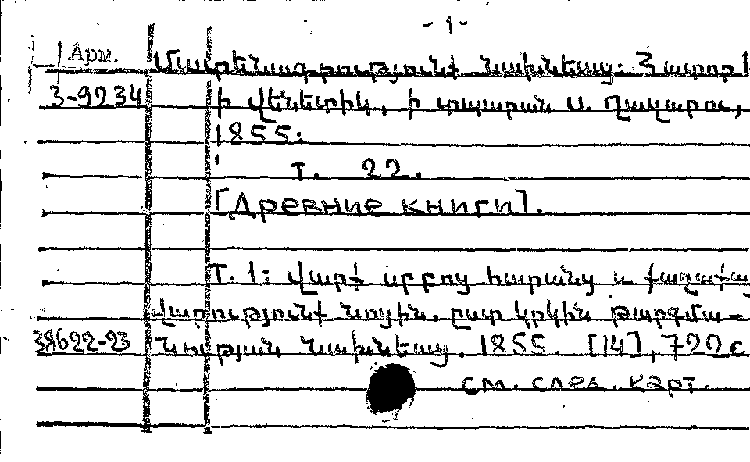 - 1 -
Арм. Մատենագրությունք նախնեաց: Հատոր 1
3-9234 ի Վենետիկ, ի տպարան Ս. Ղազարու,
1855:
Т. 22.
[Древние книги].
Т. 1: Վարք սրբոց հարանց և քաղաքա
վարությունք նոցին. ըստ կրկին թարգմա-
38622-23 նության նախնեաց. 1855. [14], 722 с
см. след. карт.